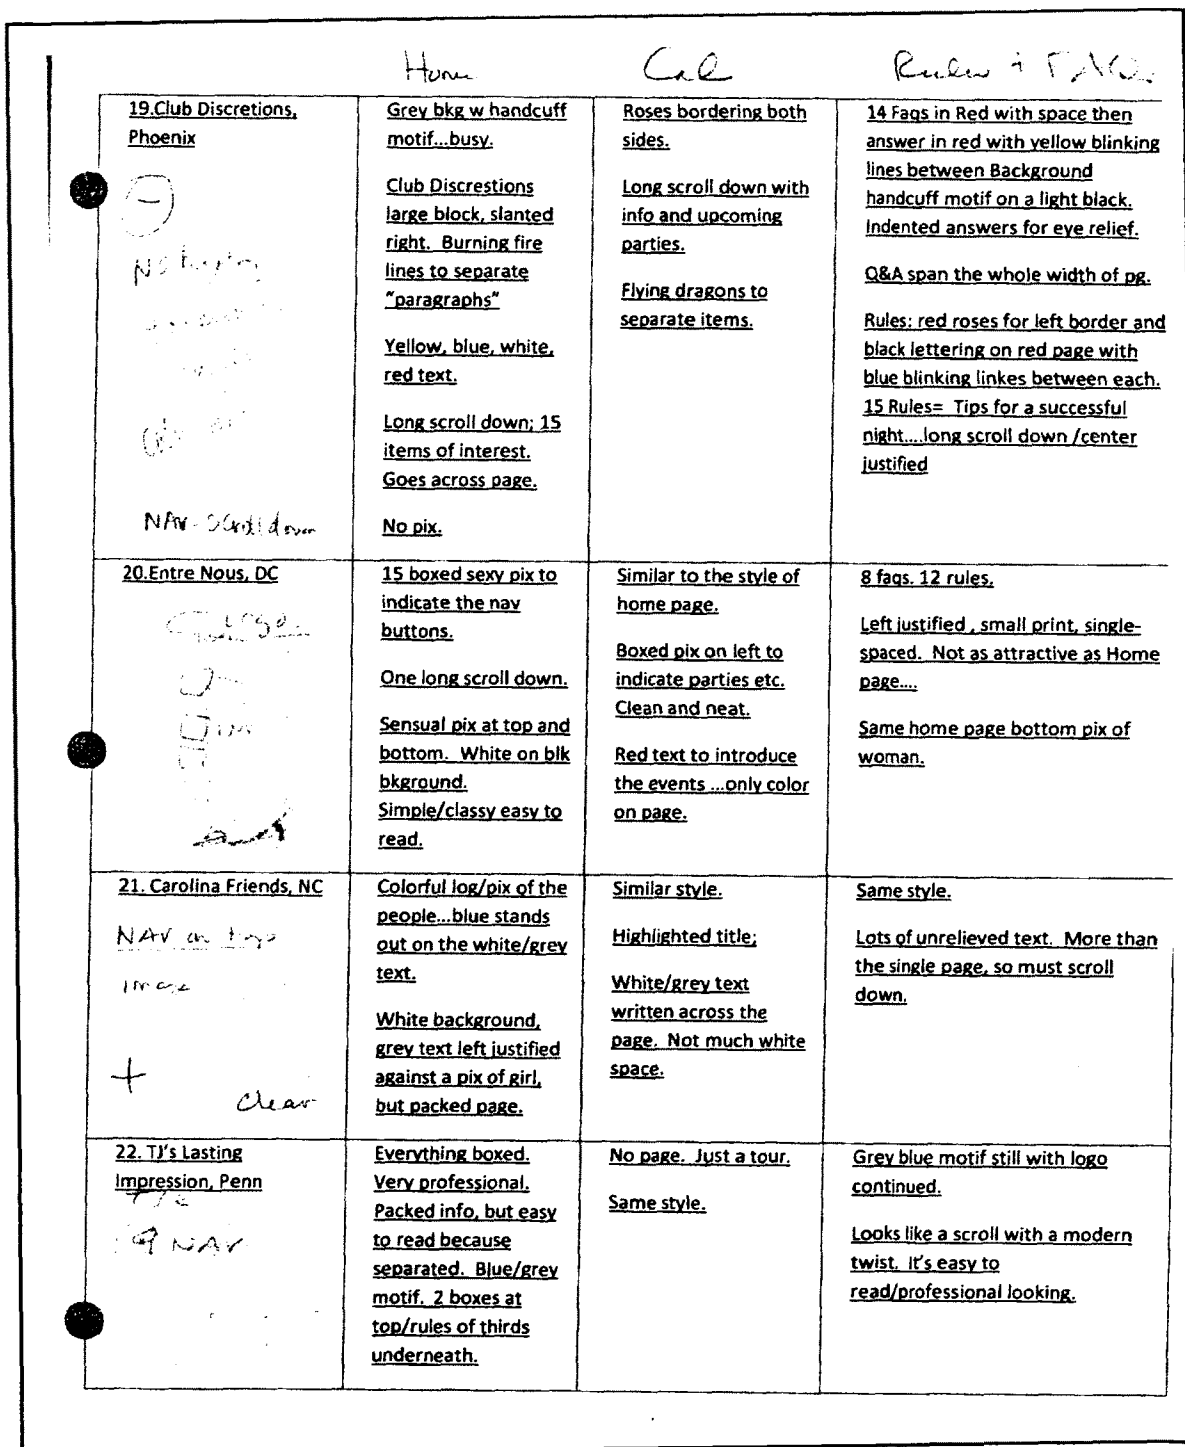 Home Cal Rules + FAQs
19.Club Discretions,
Phoenix
NAV-Scroll down
Grey bkg w handcuff
motif...busy.
Club Discrestions
large block, slanted
right. Burning fire
lines to separate
"paragraphs"
Yellow, blue, white,
red text.
Long scroll down; 15
items of interest.
Goes across page.
No pix.
Roses bordering both
sides.
Long scroll down with
info and upcoming
parties.
Flying dragons to
separate items.
14 Faqs in Red with space then
answer in red with yellow blinking
lines between Background
handcuff motif on a light black.
Indented answers for eye relief.
Q&A span the whole width of pg.
Rules: red roses for left border and
black lettering on red page with
blue blinking linkes between each.
15 Rules= Tips for a successful
night....long scroll down /center
justified
20.Entre Nous, DC
15 boxed sexy pix to
indicate the nav
buttons.
One long scroll down.
Sensual pix at top and
bottom. White on blk
bkground.
Simple/classy easy to
read.
Similar to the style of
home page.
Boxed pix on left to
indicate parties etc.
Clean and neat.
Red text to introduce
the events ...only color
on page.
8 faqs. 12 rules.
Left justified , small print, single-
spaced. Not as attractive as Home
page....
Same home page bottom pix of
woman.
21. Carolina Friends, NC
NAV on top
image
+
Clear
Colorful log/pix of the
people...blue stands
out on the white/grey
text.
White background,
grey text left justified
against a pix of girl,
but packed page.
Similar style.
Highlighted title;
White/grey text
written across the
page. Not much white
space.
Same style.
Lots of unrelieved text. More than
the single page, so must scroll
down.
22. TJ's Lasting
Impression, Penn
9 NAV
Everything boxed.
Very professional.
Packed info, but easy
to read because
separated. Blue/grey
motif. 2 boxes at
top/rules of thirds
underneath.
No page. Just a tour.
Same style.
Grey blue motif still with logo
continued.
Looks like a scroll with a modern
twist. It's easy to
read/professional looking.